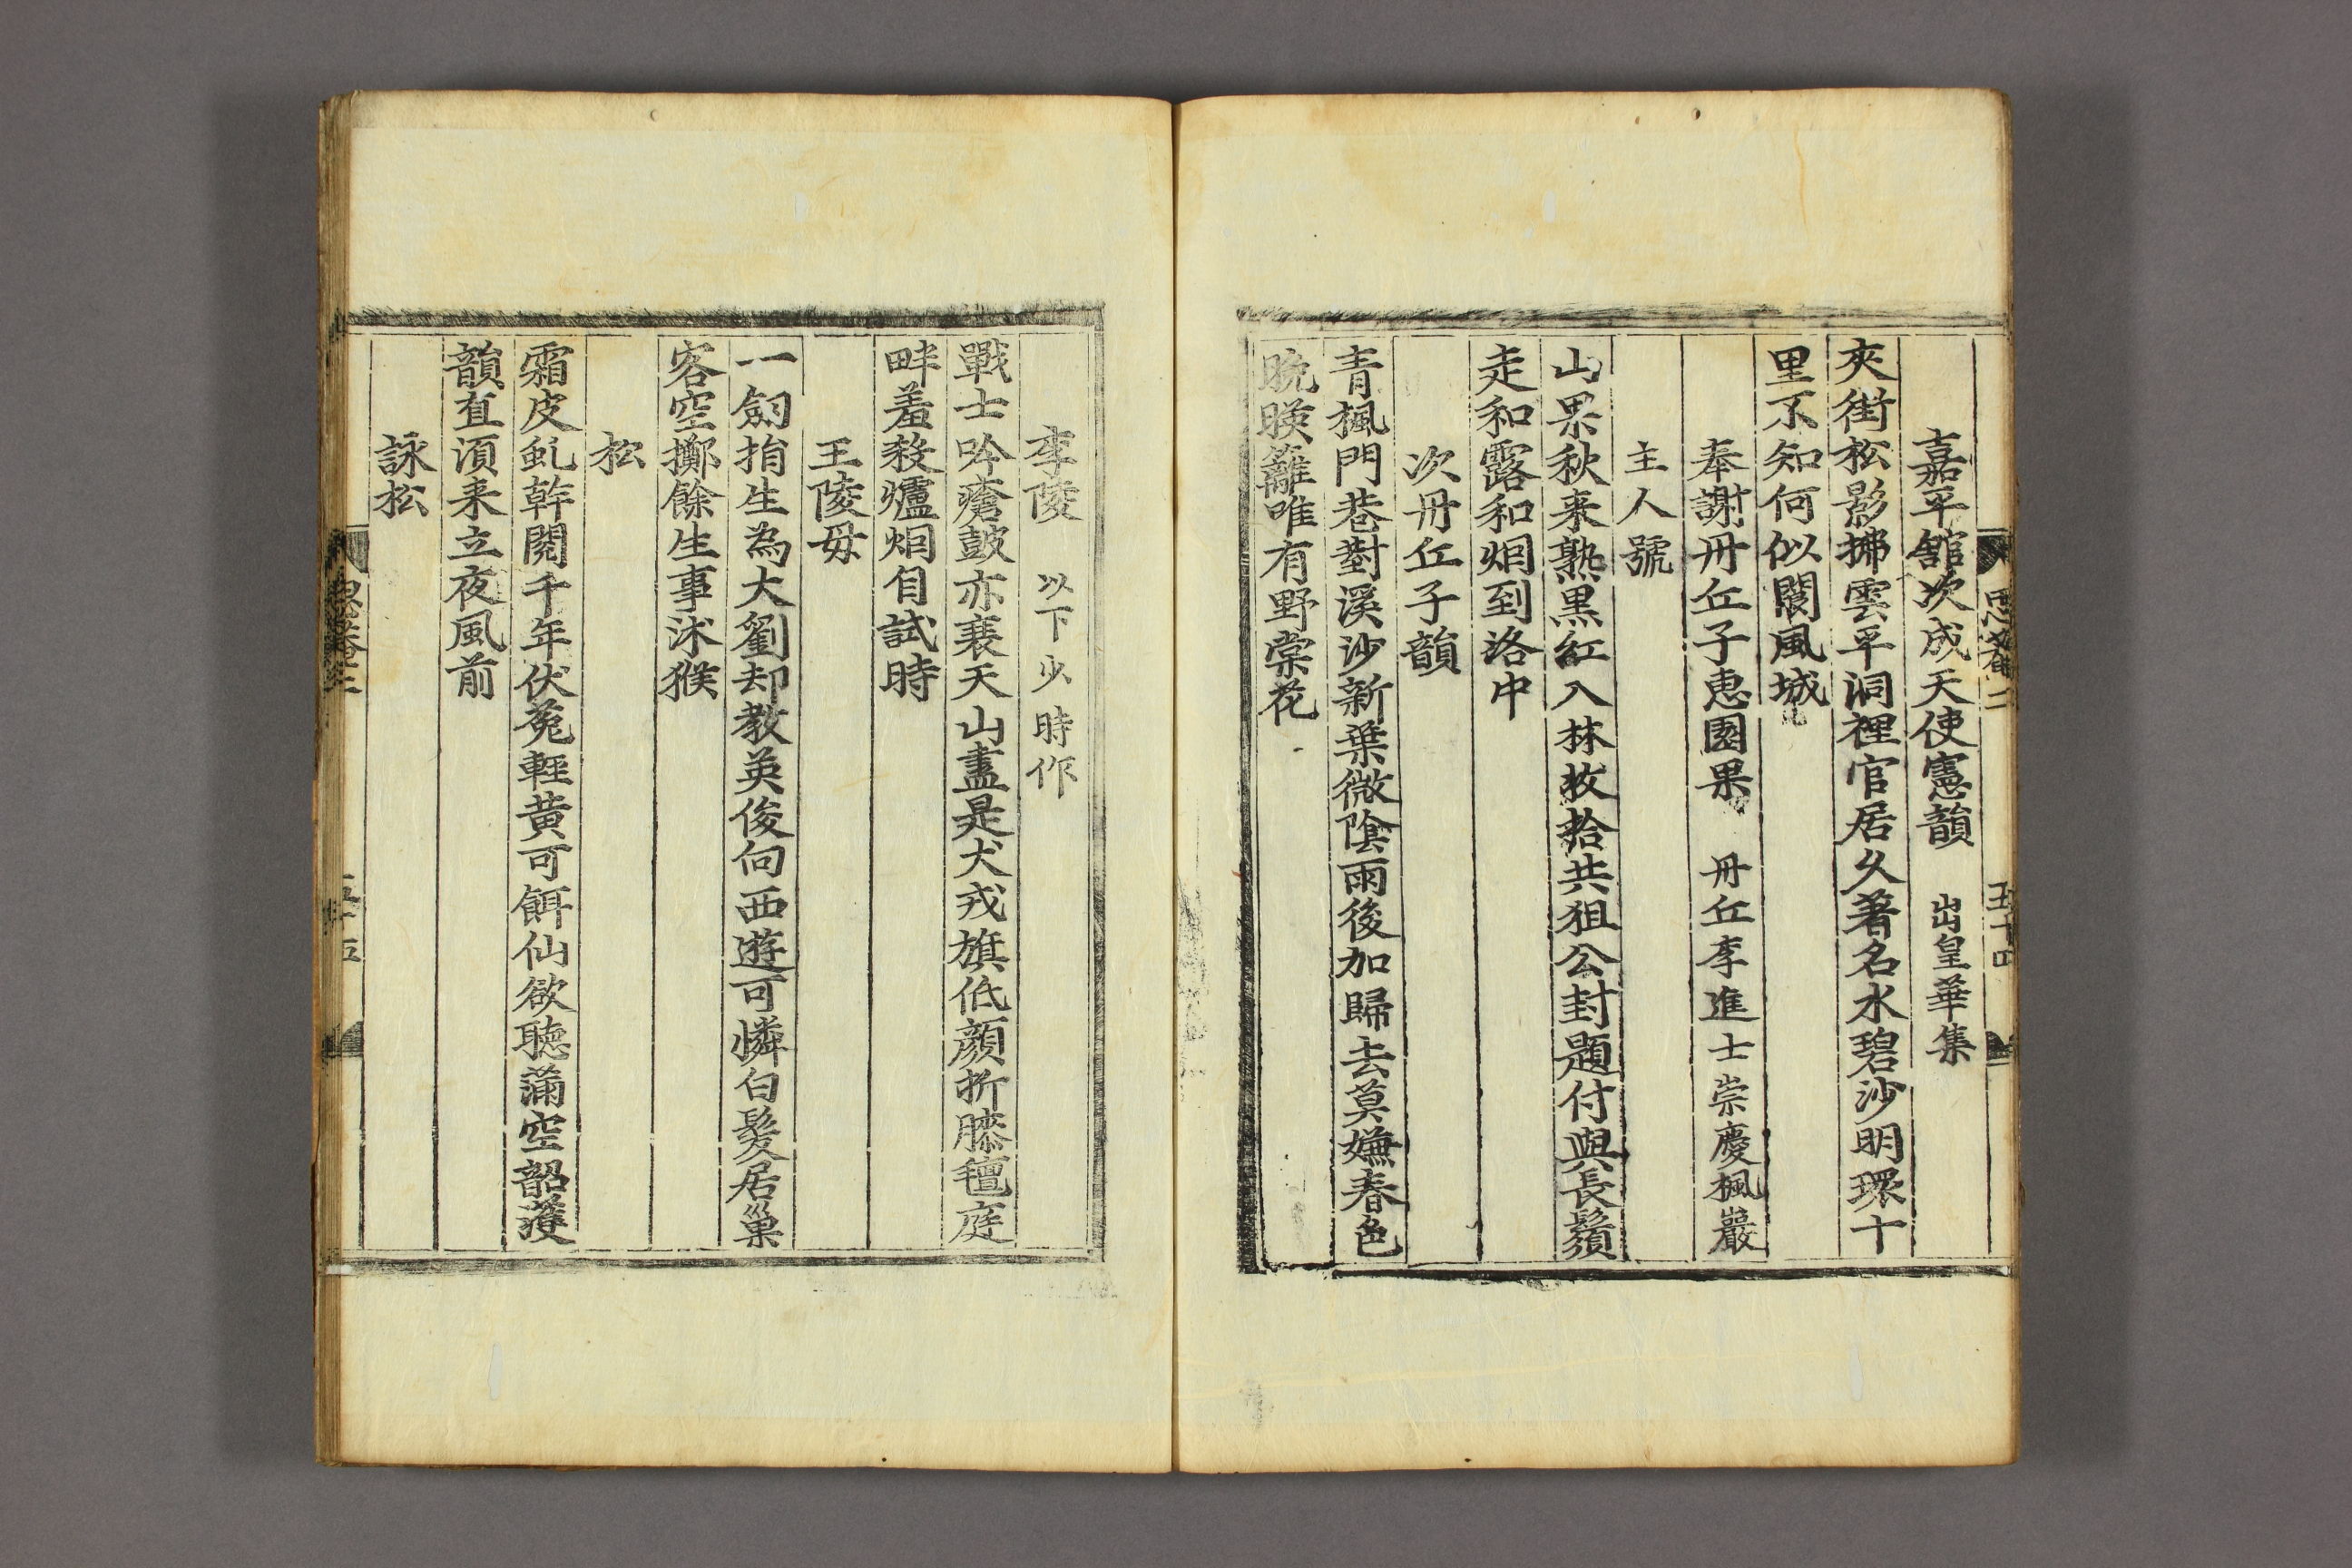 嘉平舘次成天使憲韻 出皇華集
夾街松影拂雲平洞裡官居久著名水碧沙明環十
里不知何似閬風城
奉謝丹丘子惠園果 丹丘李進士崇慶楓巖
主人號
山果秋来熟黒紅入林收拾共狙公封題付與長鬚
走和露和烟到洛中
次丹丘子韻
青楓門巷對溪沙新葉微陰雨後加歸去莫嫌春色
晩暎籬唯有野棠花
五十四
李陵 以下少時作
戰士吟瘡皷亦衰天山盡是犬戎旗低顔折膝氊庭
畔羞殺爐烟自試時
王陵母
一劒捐生為大劉却教英俊向西遊可憐白髮居巢
客空擲餘生事沭猴
松
霜皮虬幹閱千年伏菟輕黄可餌仙欲聴滿空韶濩
韻直湏来立夜風前
詠松